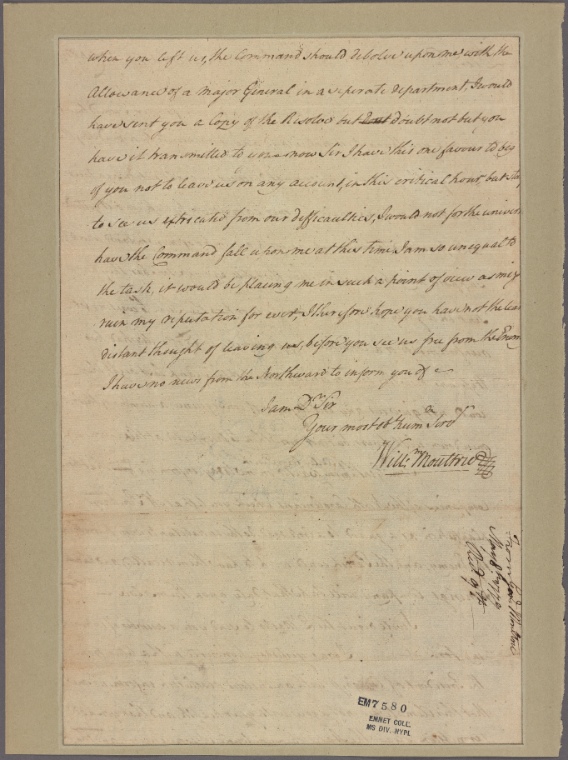 when you left us, the Command should debolve upon me with the
Allowance of a major General in a seperate department, I would
have sent you a Copy of the Resolve but doubt not but you
have it transmilted to you now Sir I have this one favour to beg
of you not to leave us on any account, in this critical hour, but Stay
to see us extricated from our difficaulties, I would not for the univers
have the Command fall upon me at this time I am so unequal to
the task, it would be placing me in such a point of view as may
ruin my reputation for ever, I therefore hope you have not the leas
distant thought of leaving us, before you see us free from the Enem
I have no news from the Northward to inform you of
I am Dr Sir
Your most Obt hum Servt
Willm Moultrie
From Genl
July 1779
Recd 9th
EM7580
EMMET COLL.
MS DIV. NYPL